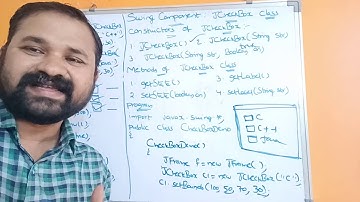 Swing Component: JCheckBox Class
Constructors of JCheckBox:-
1. JCheckBox() 2. JCheckBox(String str)
3. JCheckBox(String str, boolean
Methods of JCheckBox Class
1. getState() 3. getLabel()
2. setState(boolean on) 4. setLabel(String str)
program
import javax.swing.*;
Public Class CheckBoxDemo
{
CheckBoxDemo()
{
JFrame f = new JFrame();
JCheckBox C1 = new JCheckBox("C");
C1.setBounds(100, 50, 70, 30);
C
C++
Java